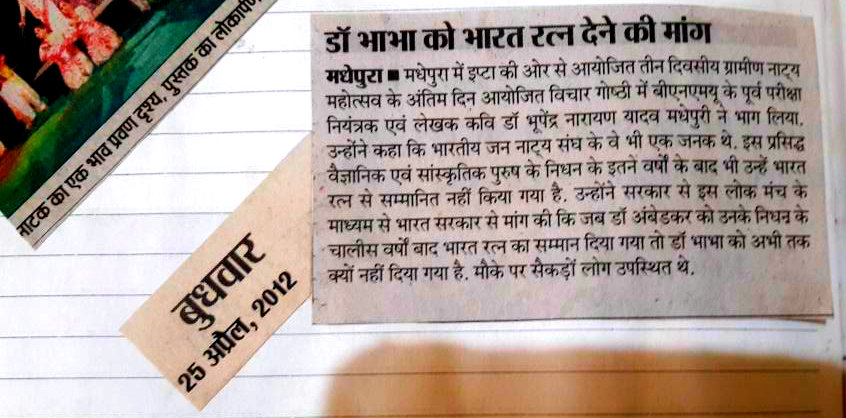 नाटक का एक भाव प्रवण दृश्य, पुस्तक का लोकार्पण
डॉ भाभा को भारत रत्न देने की मांग
मधेपुरा ■ मधेपुरा में इप्टा की ओर से आयोजित तीन दिवसीय ग्रामीण नाट्य
महोत्सव के अंतिम दिन आयोजित विचार गोष्ठी में बीएनएमयू के पूर्व परीक्षा
नियंत्रक एवं लेखक कवि डॉ भूपेंद्र नारायण यादव मधेपुरी ने भाग लिया.
उन्होंने कहा कि भारतीय जन नाट्य संघ के वे भी एक जनक थे. इस प्रसिद्ध
वैज्ञानिक एवं सांस्कृतिक पुरुष के निधन के इतने वर्षों के बाद भी उन्हें भारत
रत्न से सम्मानित नहीं किया गया है. उन्होंने सरकार से इस लोक मंच के
माध्यम से भारत सरकार से मांग की कि जब डॉ अंबेडकर को उनके निधन के
चालीस वर्षों बाद भारत रत्न का सम्मान दिया गया तो डॉ भाभा को अभी तक
क्यों नहीं दिया गया है. मौके पर सैकड़ों लोग उपस्थित थे.
बुधवार
25 अप्रैल, 2012